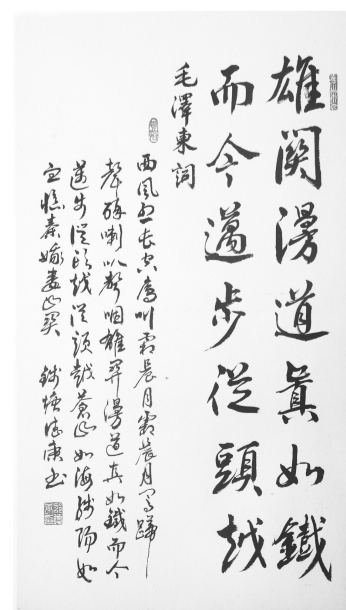 雄關漫道眞如鐵
而今邁步從頭越
毛澤東詞
西風烈長空雁叫霜晨月霜晨月馬蹄
聲碎喇叭聲咽雄關漫道真如鐵而今
邁步從頭越從頭越蒼山如海殘陽如
血憶秦娥婁山關 錢塘書